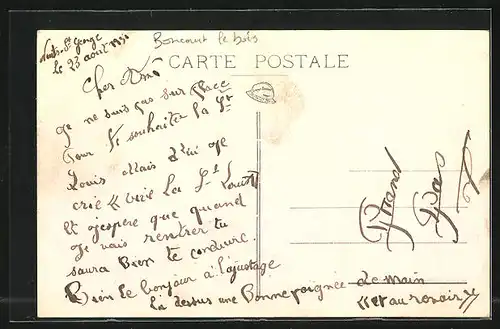 le 23 août 1931
Boncourt le bois
CARTE POSTALE
Cher
Je ne suis pas sur place
Pour te souhaiter la St
Louis Mais d'ici je
crie « vive la St Louis »
Et j'espère que quand
Je vais rentrer tu
saura Bien te conduire.
Bien le bonjour à l'ajustage
Là dessus une Bonne poignée de main
« et au revoir »
Grand